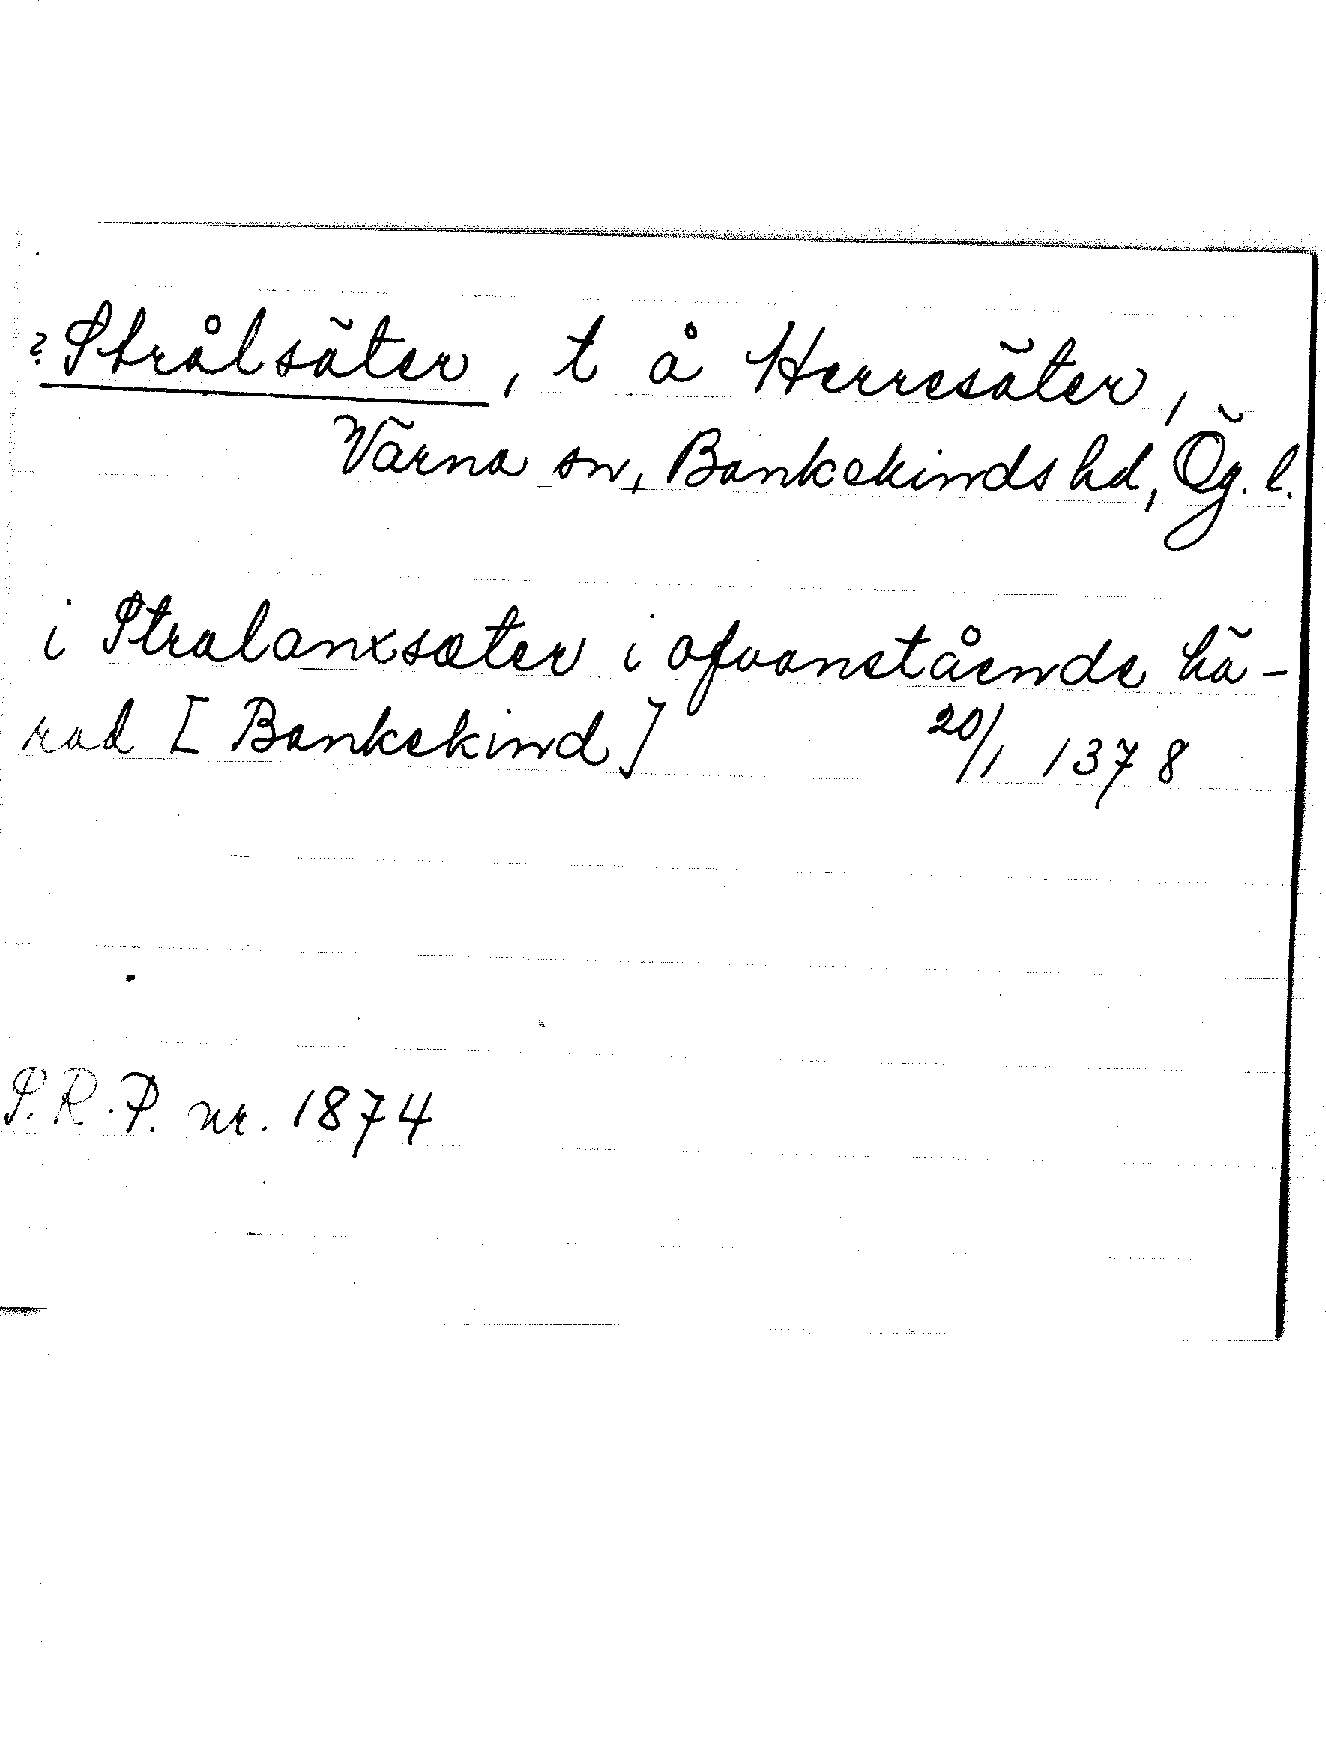 ? Strålsäter, t å Herresäter,
Värna sn, Bankekinds hd, Ög. l.
i Stralanxsæter i ofvanstående hä-
rad [Bankekind] 20/1 1378
S.R.P. nr. 1874